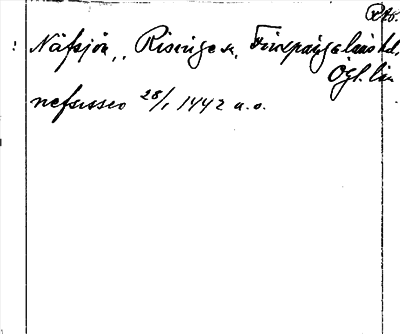 RAO.
Näfsjön, Risinge sn, Finspånga läns hd,
Ögl. län
nefsusseo 28/1 1442 a.o.